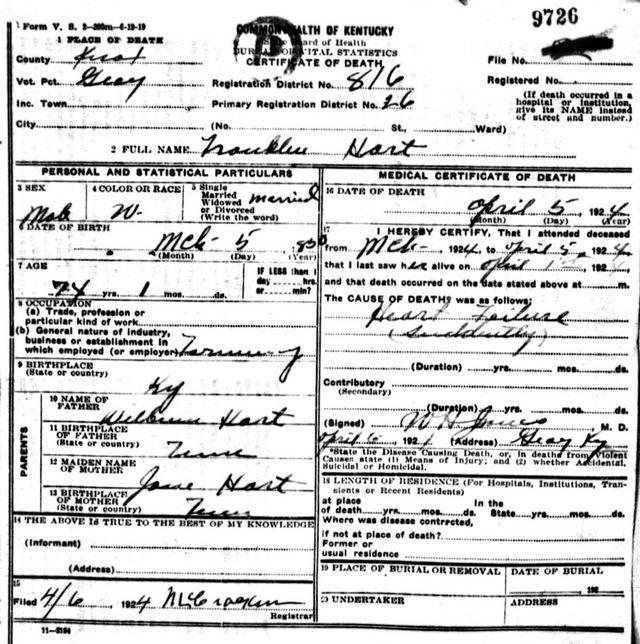 Form V. S. 2-200m-6-19-19
COMMONWEALTH OF KENTUCKY
9726
State Board of Health
BUREAU OF VITAL STATISTICS
CERTIFICATE OF DEATH
1 PLACE OF DEATH
County
Vot. Pct. Geary
Inc. Town
City
Registration District No. 816
Primary Registration District No. 26
(No. St., Ward)
File No.
Registered No.
(If death occurred in a
hospital or institution,
give its NAME instead
of street and number.)
2 FULL NAME Franklin Hart
PERSONAL AND STATISTICAL PARTICULARS
3 SEX
Male
4 COLOR OR RACE
W
5 Single
Married
Widowed
or Divorced
(Write the word)
married
6 DATE OF BIRTH
Mch 5 1850
(Month) (Day) (Year)
7 AGE
74 yrs. 1 mos. ds.
IF LESS than 1
day hrs.
or min?
8 OCCUPATION
(a) Trade, profession or
particular kind of work
(b) General nature of industry,
business or establishment in
which employed (or employer) Farming
9 BIRTHPLACE
(State or country)
Ky
PARENTS
10 NAME OF
FATHER
Hart
11 BIRTHPLACE
OF FATHER
(State or country)
Tenn
12 MAIDEN NAME
OF MOTHER
Jane Hart
13 BIRTHPLACE
OF MOTHER
(State or country)
Tenn
14 THE ABOVE IS TRUE TO THE BEST OF MY KNOWLEDGE
(Informant)
(Address)
15
Filed 4/6 1924
Registrar
11-3184
MEDICAL CERTIFICATE OF DEATH
16 DATE OF DEATH
April 5, 1924
(Month) (Day) (Year)
17
I HEREBY CERTIFY, That I attended deceased
from Mch 1924, to April 5, 1924
that I last saw h alive on April 1 192
and that death occurred on the date stated above at m.
The CAUSE OF DEATH was as follows:
Heart Failure
(Duration) yrs. mos. ds.
Contributory
(Secondary)
(Duration) yrs. mos. ds.
(Signed) W H Jones M. D.
April 6, 1924 (Address) Geary Ky
*State the Disease Causing Death, or, in deaths from Violent
Causes state (1) Means of Injury; and (2) whether Accidental,
Suicidal or Homicidal.
18 LENGTH OF RESIDENCE (For Hospitals, Institutions, Tran-
sients or Recent Residents)
at place In the
of death yrs. mos. ds. State yrs. mos. ds.
Where was disease contrected,
if not at place of death?
Former or
usual residence
19 PLACE OF BURIAL OR REMOVAL
DATE OF BURIAL
192
20 UNDERTAKER
ADDRESS